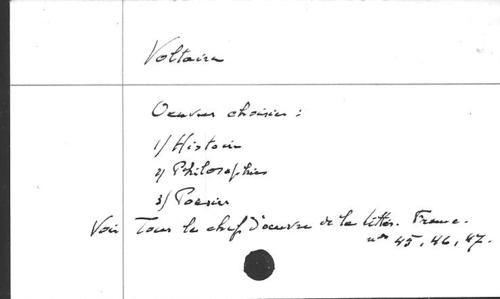 Voltaire
Oeuvres choisies :
1) Histoire
2) Philosophie
3) Poesies
Voir Tous les chefs d'oeuvre de la littér. Franc.
nos 45, 46, 47.